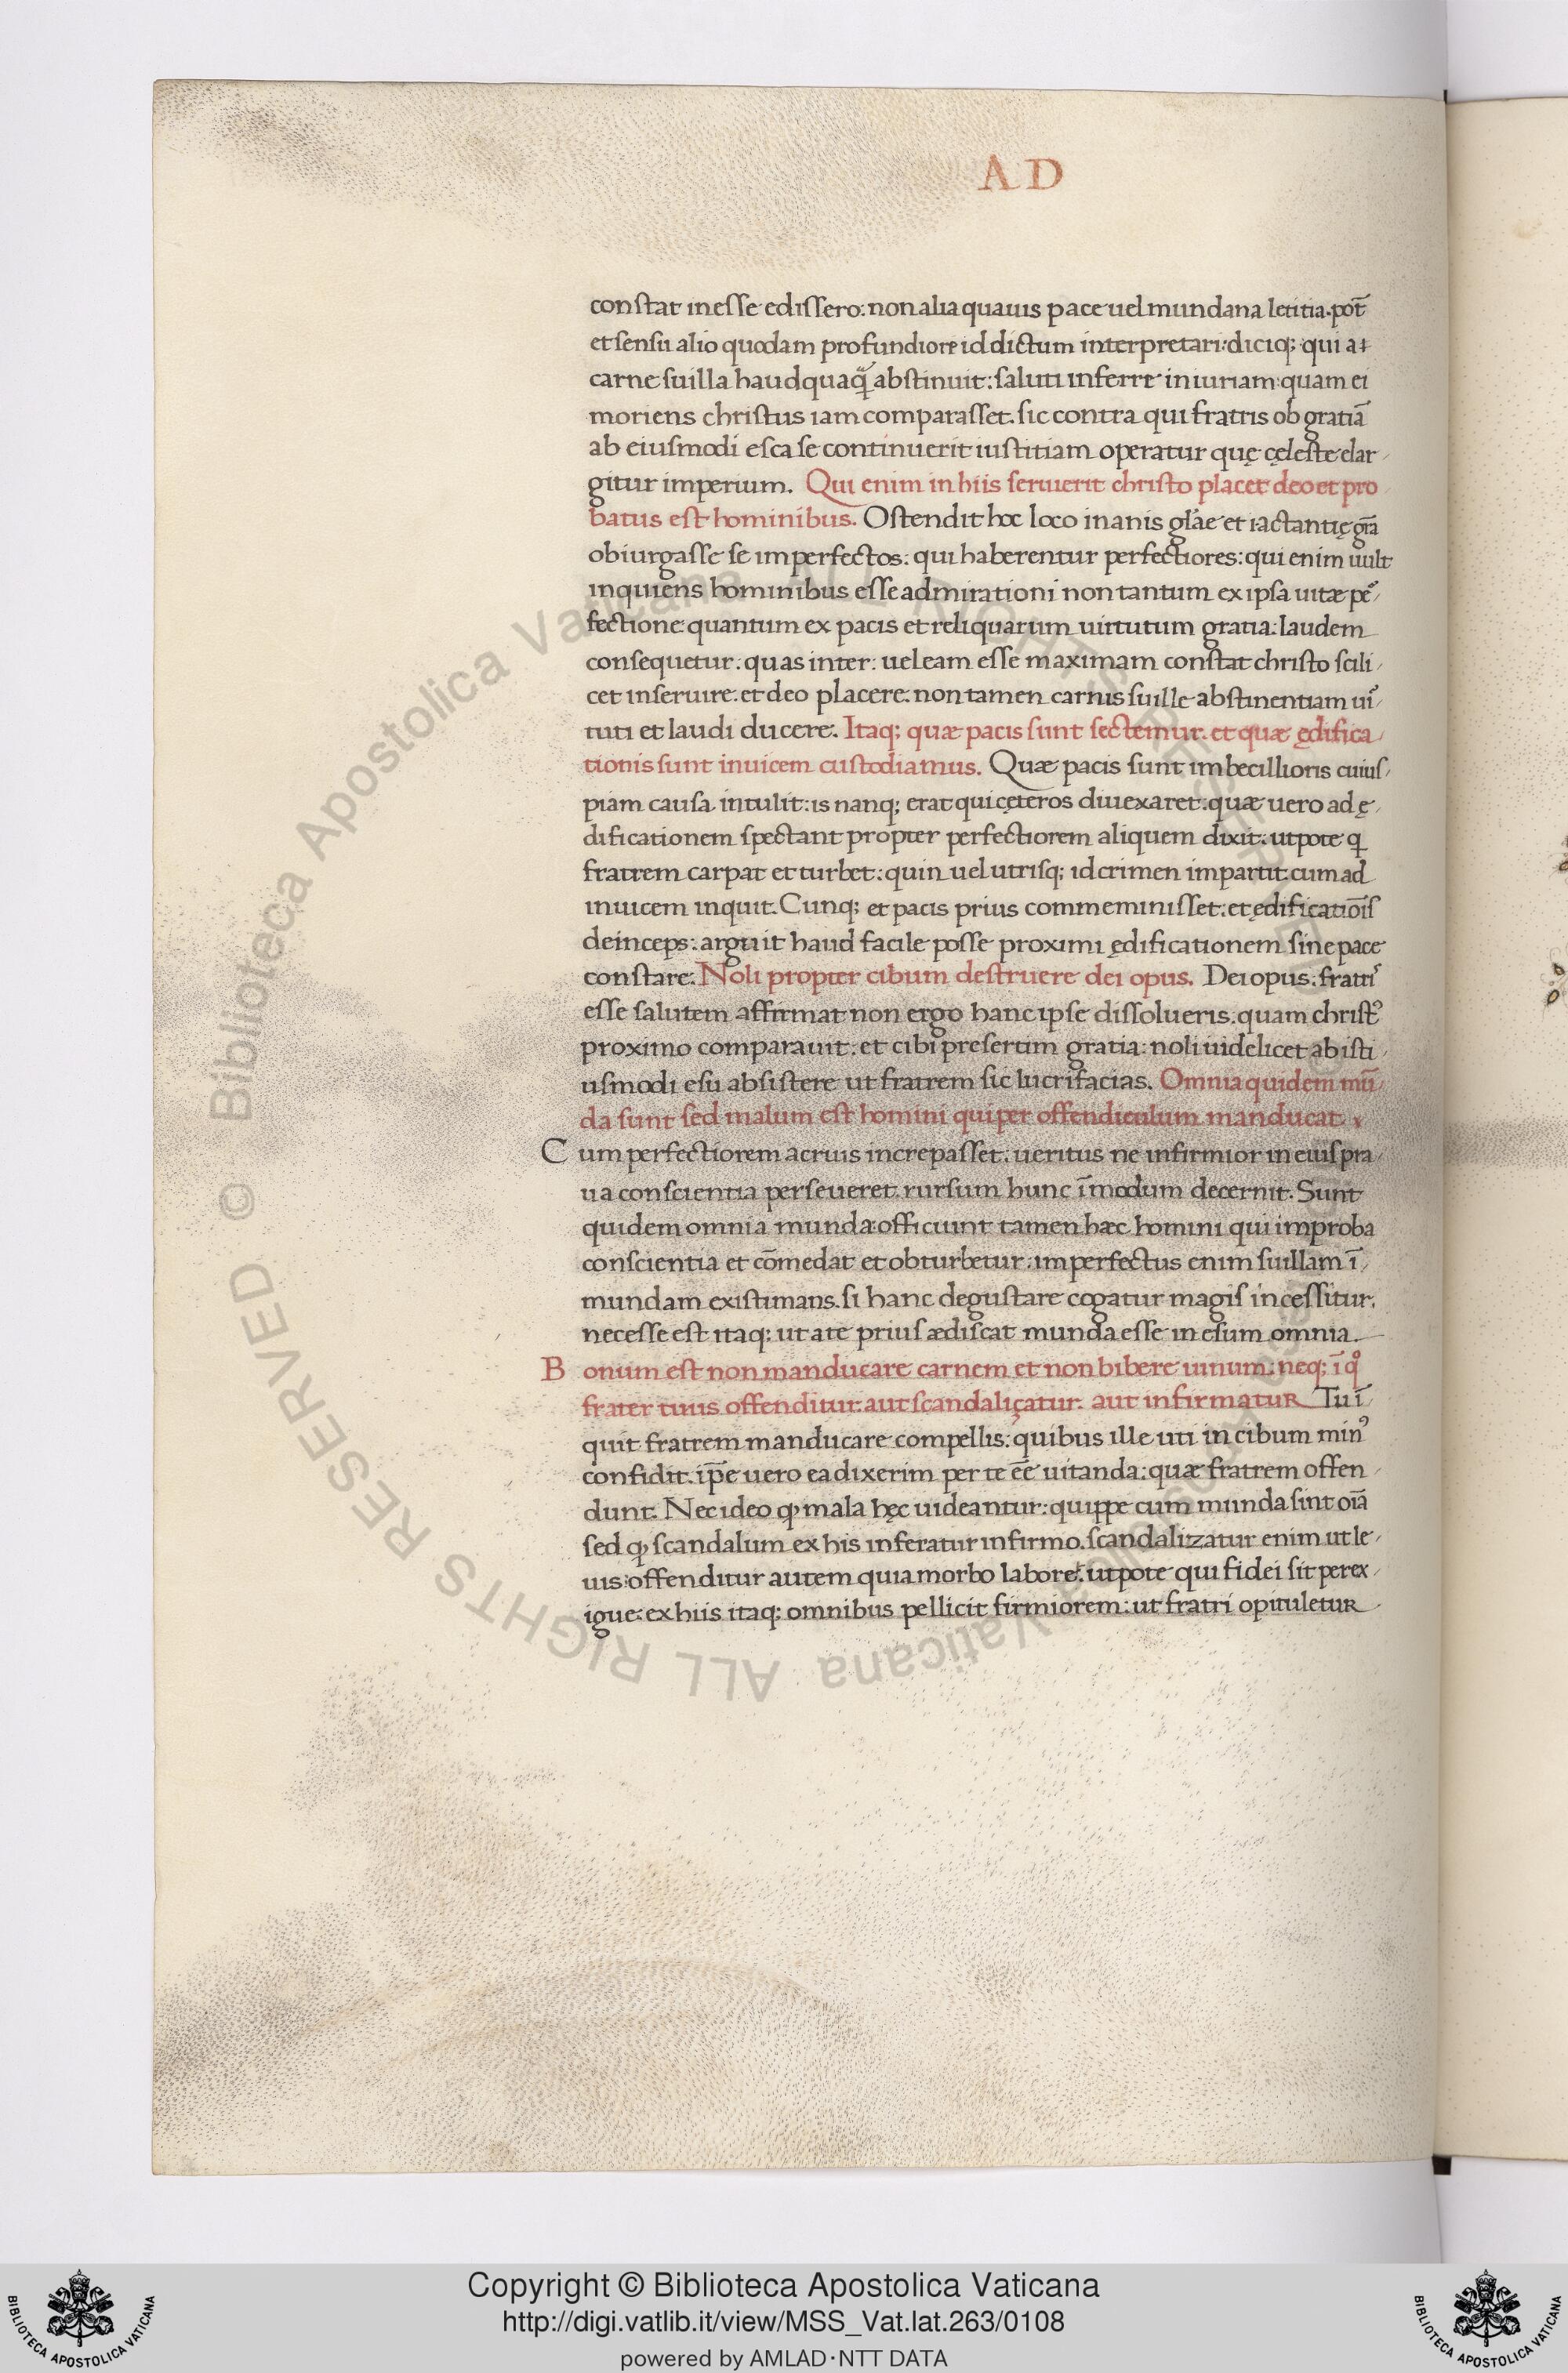 A D
constat inesse edissero: non alia quauis pace uel mundana letitia. pot̄
et sensu alio quodam profundiore id dictum interpretari: diciq; qui a
carne suilla haudquaq̃ abstinuit: saluti inferre iniuriam: quam ei
moriens christus iam comparasset. sic contra qui fratris ob gratiā
ab eiusmodi esca se continuerit iustitiam operatur quę cęleste elar
gitur imperium. Qui enim in hiis seruierit christo placet deo et pro
batus est hominibus. Ostendit hoc loco inanis gl̃ae et iactantię gr̃a
obiurgasse se imperfectos: qui haberentur perfectiores: qui enim uult
inquiens hominibus esse admirationi non tantum ex ipsa uitæ pe᷑
fectione quantum ex pacis et reliquarum uirtutum gratia: laudem
consequetur: quas inter: uel eam esse maximam constat christo scili
cet inseruire: et deo placere: non tamen carnis suille abstinentiam ui᷑
tuti et laudi ducere. Itaq; quæ pacis sunt sectemur. et quæ ędifica
tionis sunt inuicem custodiamus. Quæ pacis sunt imbecillioris cuius
piam causa intulit: is nanq; erat qui cęteros diuexaret: quæ uero ad ę
dificationem spectant propter perfectiorem aliquem dixit: utpote q
fratrem carpat et turbet: quin uel utrisq; id crimen impartit cum ad
inuicem inquit. Cunq; et pacis prius commeminisset: et ędificatiōis
deinceps: arguit haud facile posse proximi ędificationem sine pace
constare: Noli propter cibum destruere dei opus. Dei opus: fratri᷑
esse salutem affirmat non ergo hanc ipse dissolueris: quam christ᾽
proximo comparauit: et cibi presertim gratia: noli uidelicet ab isti
usmodi esu absistere ut fratrem sic lucrifacias. Omnia quidem mū
da sunt sed malum est homini qui per offendiculum manducat
C um perfectiorem acrius increpasset: ueritus ne infirmior in eius pra
ua conscientia perseueret. rursum hunc ī modum decernit. Sunt
quidem omnia munda: officiunt tamen hæc homini qui improba
conscientia et cōmedat et obturbetur: imperfectus enim suillam ī
mundam existimans. si hanc degustare cogatur magis incessitur.
necesse est itaq; ut a te prius ædiscat munda esse in esum omnia.
B onum est non manducare carnem et non bibere uinum: neq; ī qͦ
frater tuus offenditur: aut scandaliçatur. aut infirmatur Tu ī
quit fratrem manducare compellis: quibus ille uti in cibum min᾽
confidit. ip̄e uero ea dixerim per te eē uitanda: quæ fratrem offen
dunt. Nec ideo ꝙ mala hęc uideantur: quippe cum munda sint oīa
sed ꝙ scandalum ex his inferatur infirmo. scandalizatur enim ut le
uis: offenditur autem quia morbo laboret: utpote qui fidei sit perex
igue: ex hiis itaq; omnibus pellicit firmiorem: ut fratri opituletur
© Biblioteca Apostolica Vaticana ALL RIGHTS RESERVED
Copyright © Biblioteca Apostolica Vaticana
http://digi.vatlib.it/view/MSS_Vat.lat.263/0108
powered by AMLAD·NTT DATA
BIBLIOTECA APOSTOLICA VATICANA
BIBLIOTECA APOSTOLICA VATICANA